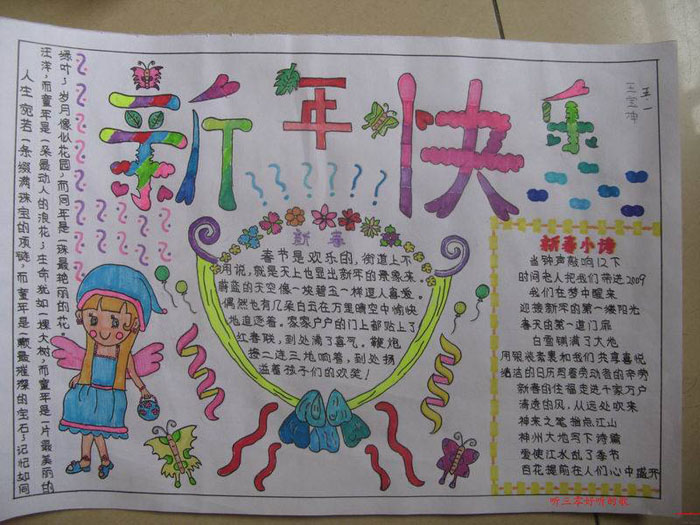 新年快乐
五、一
新春
春节是欢乐的，街道上不
用说，就是天上也显出新年的景象来。
蔚蓝的天空像一块碧玉一样逗人喜爱。
偶然也有几朵白云在万里晴空中愉快
地追逐着。家家户户的门上都贴上了
红春联，到处满了喜气，鞭炮
接二连三地响着，到处扬
溢着孩子们的欢笑！
新春小诗
当钟声敲响12下
时间老人把我们带进2009
我们在梦中醒来
迎接新年的第一缕阳光
春天的第一道门扉
白雪铺满了大地
用银装素裹和我们共尊喜悦
皓洁的日历图着劳动者的辛劳
新春的住福走进千家万户
清透的风，从远处吹来
神来之笔指点江山
神州大地写下诗篇
爱使江水乱了季节
百花提前在人们心中盛开
绿叶；岁月像似花园，而同年是一珠最艳丽的花。
汪洋，而童年是一朵最动人的浪花；生命犹如一棵大树，而童年是一片最美丽的
人生宛若一条缀满珠宝的项链，而童年是一颗最璀璨的宝石；记忆如同